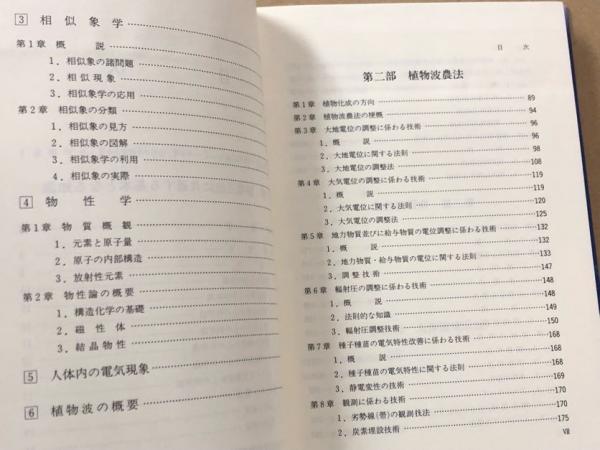 3 相似象学
第1章 概　説
1．相似象の諸問題
2．相似現象
3．相似象学の応用
第2章 相似象の分類
1．相似象の見方
2．相似象の図解
3．相似象学の利用
4．相似象の実際
4 物性学
第1章 物質概観
1．元素と原子量
2．原子の内部構造
3．放射性元素
第2章 物性論の概要
1．構造化学の基礎
2．磁性体
3．結晶物性
5 人体内の電気現象
6 植物波の概要
目　次
第二部　植物波農法
第1章 植物化成の方向 89
第2章 植物波農法の梗概 94
第3章 大地電位の調整に係わる技術 96
1．概　説 96
2．大地電位に関する法則 98
3．大地電位の調整法 108
第4章 大気電位の調整に係わる技術 119
1．概　説 119
2．大気電位に関する法則 120
3．大気電位の調整法 125
第5章 地力物質並びに給与物質の電位調整に係わる技術 132
1．概　説 132
2．地力物質・給与物質の電位に関する法則 133
3．調整技術 147
第6章 輻射圧の調整に係わる技術 148
1．概　説 148
2．法則的な知識 149
3．輻射圧調整技術 150
第7章 種子種苗の電気特性改善に係わる技術 168
1．概　説 168
2．種子種苗の電気特性に関する法則 168
3．静電変性の技術 169
第8章 観測に係わる技術 170
1．劣勢線(帯)の観測技法 170
2．炭素埋設技術 175
Ⅶ